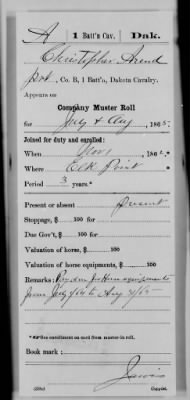 A | 1 Batt'n Cav. | Dak.
Christopher Arend
Pvt., Co. B, 1 Batt'n, Dakota Cavalry.
Appears on
Company Muster Roll
for July & Aug, 1865.
Joined for duty and enrolled:
When Nov, 186 .*
Where Elk Point
Period 3 years.*
Present or absent present
Stoppage, $ 100 for
Due Gov't, $ 100 for
Valuation of horse, $ 100
Valuation of horse equipments, $ 100
Remarks: Pay due for Horse equipments
from July 1/64 to Aug /65
*See enrollment on card from muster-in roll.
Book mark:
(358c)
Copyist.